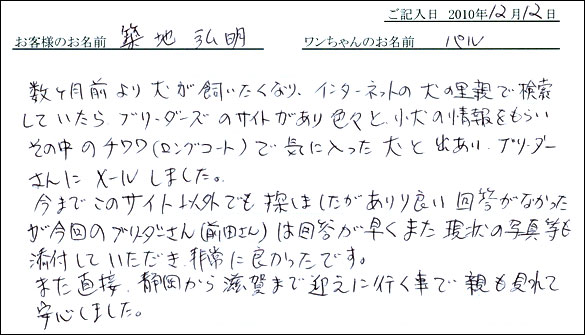 ご記入日 2010年12月12日
お客様のお名前 築地 弘明 ワンちゃんのお名前 パル
数ヶ月前より犬が飼いたくなり、インターネットの犬の里親で検索
していたら ブリーダーズのサイトがあり色々と、小犬の情報をもらい
その中のチワワ(ロングコート)で気に入った犬と出あい、ブリーダー
さんにメールしました。
今までこのサイト以外でも探しましたがありり良い回答がなかった
が今回のブリーダーさん(前田さん)は回答が早くまた現状の写真等も
添付していただき非常に良かったです。
また直接、静岡から滋賀まで迎えに行く事で親も見れて
安心しました。